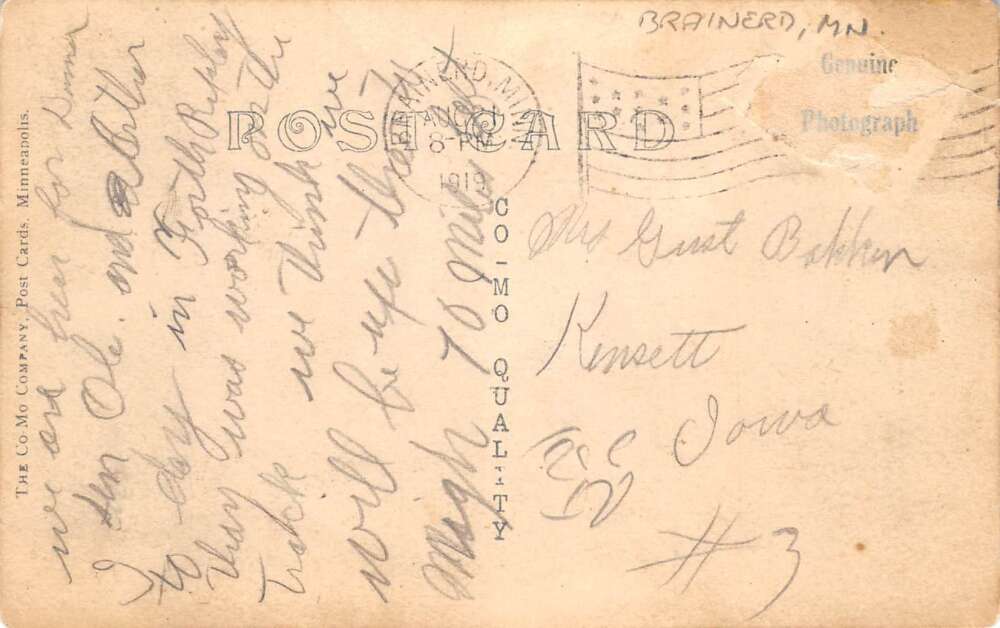 BRAINERD, MN.
Genuine
Photograph
POST CARD
BRAINERD, MINN.
AUG
8-PM
1919
CO-MO QUALITY
THE CO-MO COMPANY, Post Cards, Minneapolis.
we are here for Dinner
I Ole and
to day in Fort Ripley
thay was working on the
Track we think we
will be up their
70 Miles
Mrs Gust Bakken
Kensett
Iowa
#3